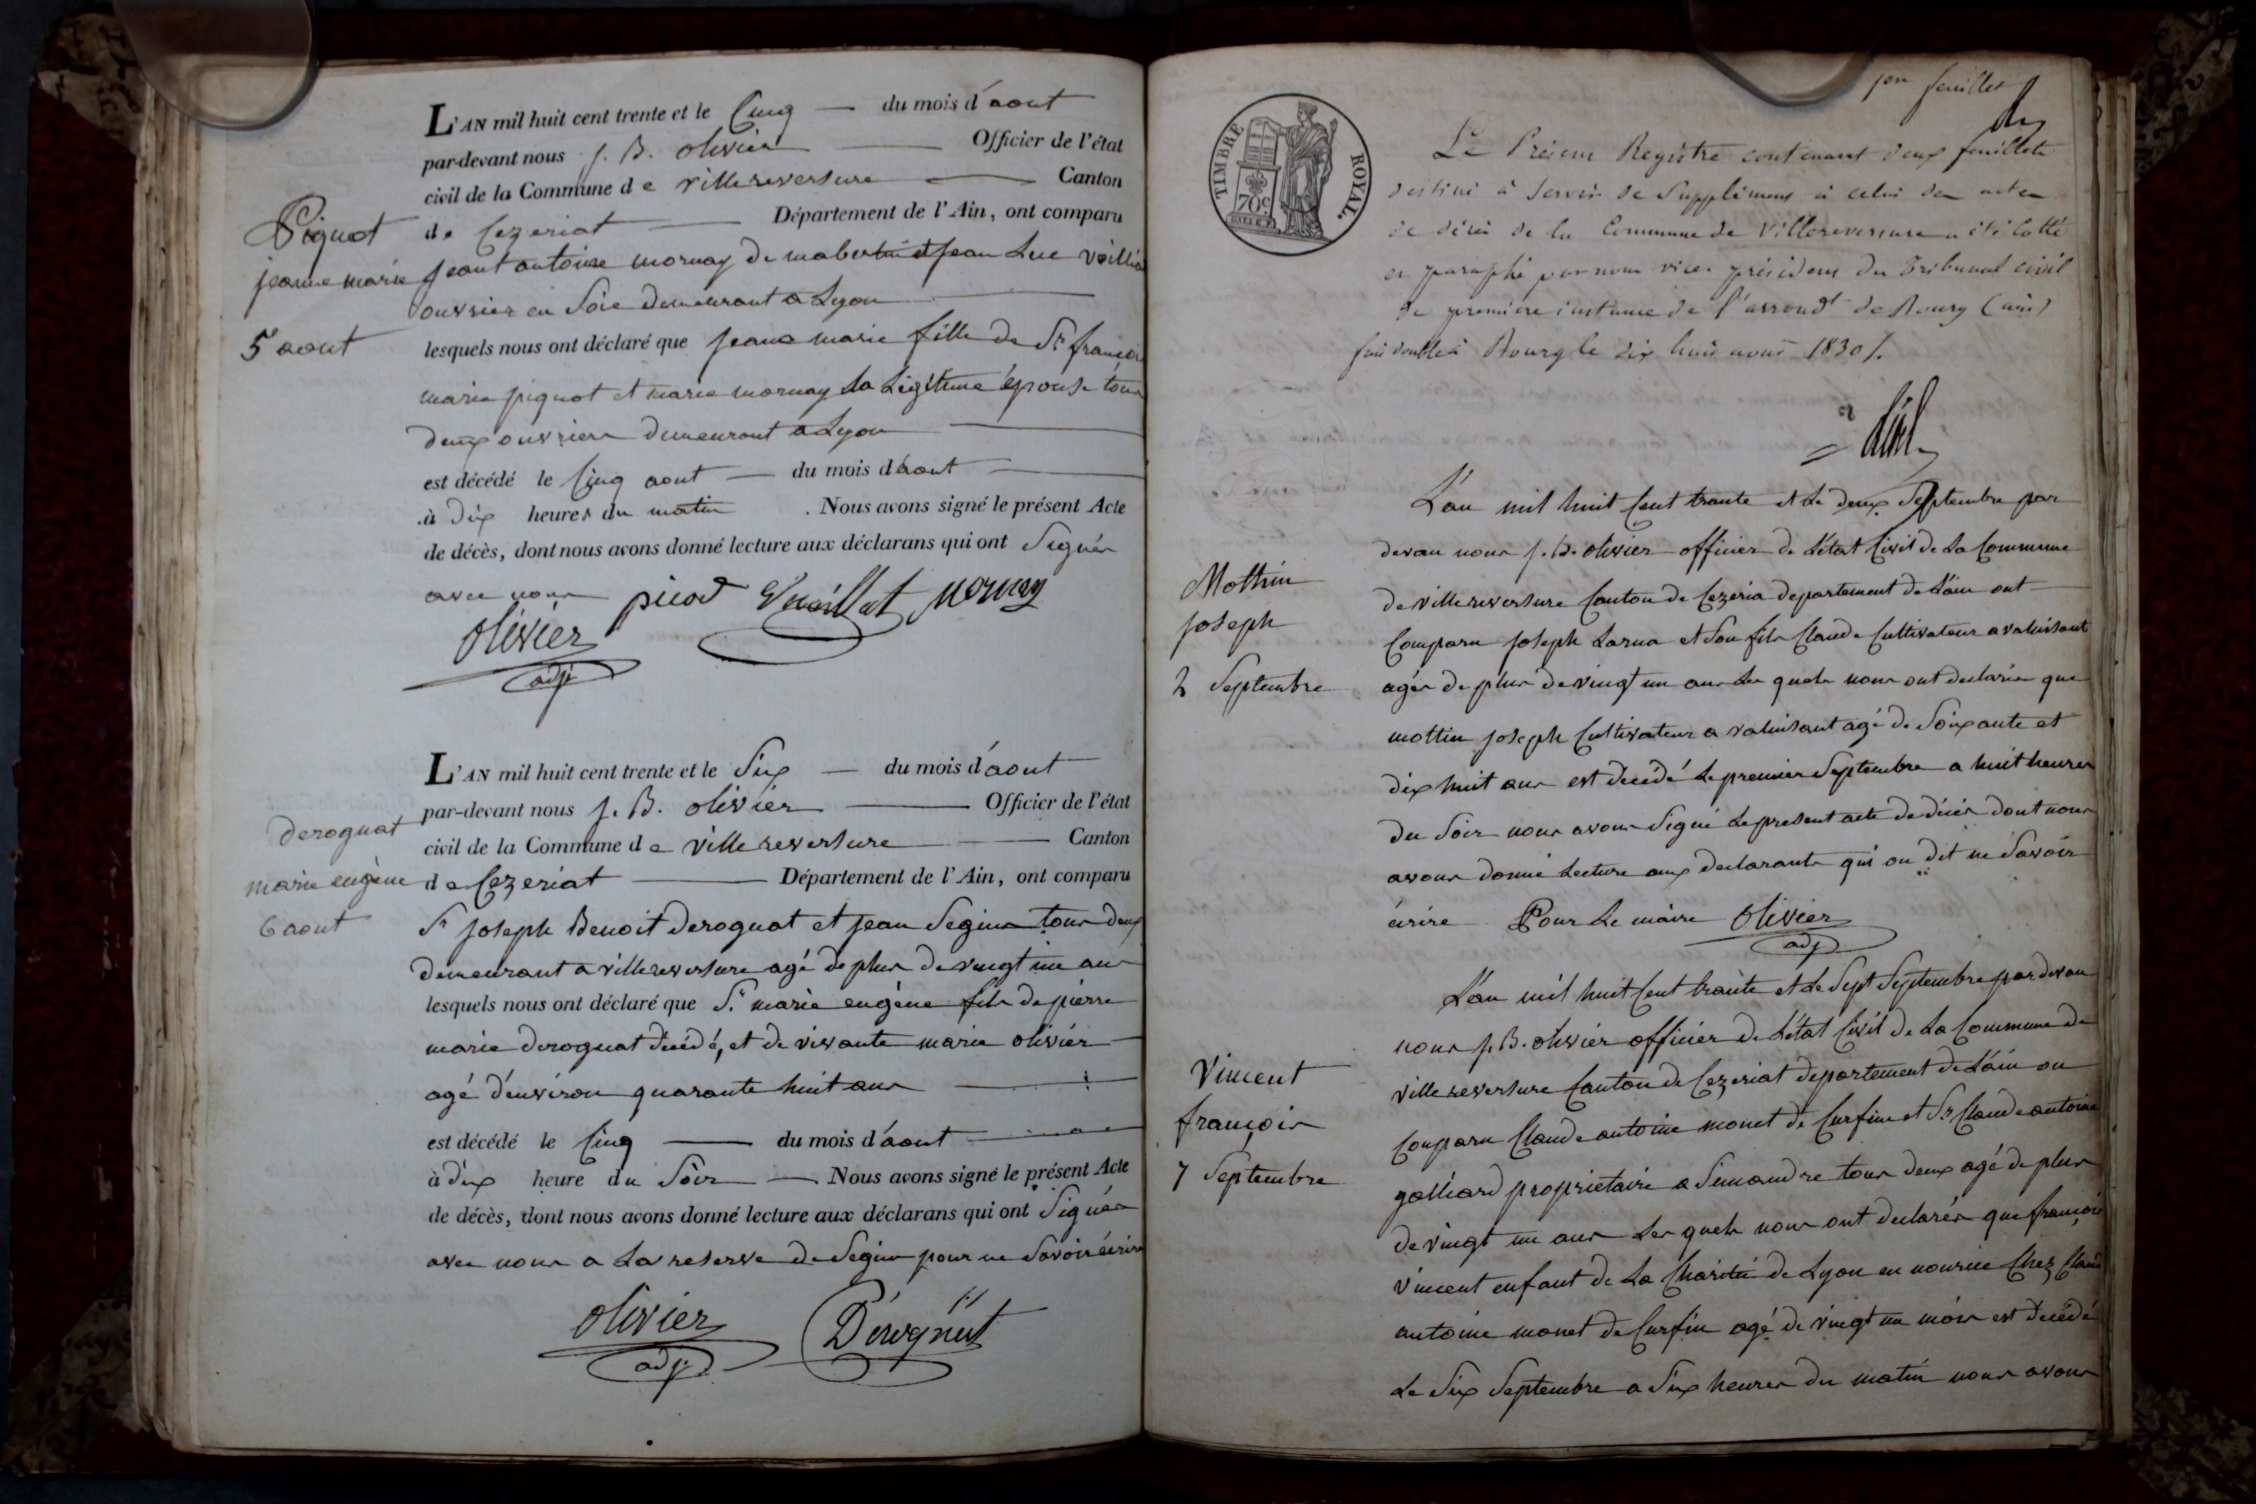 L'AN mil huit cent trente et le Cinq du mois d'aout
par-devant nous J. B. olivier Officier de l'état
civil de la Commune de villereversure Canton
de Cezeriat Département de l'Ain, ont comparu
Piquot
jeanne marie
5 aout
jeant antoine mornay de et jean Luc
ouvrier en Soie demeurant a Lyon
lesquels nous ont déclaré que jeane marie fille de Sr françois
marie piquot et marie mornay Sa Légitime épouse tous
deux ouvriers demeurant a Lyon
est décédé le Cinq aout du mois d'aout
à dix heures du matin . Nous avons signé le présent Acte
de décès, dont nous avons donné lecture aux déclarans qui ont Signés
avec nous picod mornay
olivier
adj
L'AN mil huit cent trente et le Six du mois d'aout
par-devant nous J. B. olivier Officier de l'état
civil de la Commune de villereversure Canton
de Cezeriat Département de l'Ain, ont comparu
deroguat
marie eugène
6 aout
Sr joseph Benoit deroguat et jean Seguin tous deux
demeurant a villereversure agé de plus de vingt un ans
lesquels nous ont déclaré que Sr marie eugène fils de pierre
marie deroguat décédé, et de vivante marie olivier
agé d'environ quarante huit ans
est décédé le Cinq du mois d'aout
à dix heure du Soir Nous avons signé le présent Acte
de décès, dont nous avons donné lecture aux déclarans qui ont Signés
avec nous a La reserve de Seguin pour ne Savoir écrire
olivier
adj
1er feuillet
TIMBRE ROYAL.
70c
Le Présent Registre contenant deux feuillets
destiné à servir de Supplément à celui des actes
de décès de la Commune de Villereversure a été Cotté
et paraphé par nous vice-président du Tribunal civil
de première instance de l'arrondt de Bourg (ain)
fait double à Bourg le dix huit aout 1830 /.
L'an mil huit Cent trante et Le deux Septembre par
devan nous J. B. olivier officier de L'état Civil de La Commune
de villereversure Canton de Cezeria departement de L'ain ont
Comparu joseph Larua et Son fils Claude Cultivateur a valuisant
Mothin
joseph
2 Septembre
agés de plus de vingt un ans Les quels nous ont declarée que
mottin joseph Cultivateur a valuisant agé de Soixante et
dix huit ans est decedé Le premier Septembre a huit heures
du Soir nous avons Signé Le present acte de décès dont nous
avons donné Lecture aux declarants qui on dit ne Savoir
écrire Pour Le maire olivier
adj
L'an mil huit Cent trante et Le Sept Septembre par devan
nous J. B. olivier officier de L'état Civil de La Commune de
villereversure Canton de Cezeriat departement de L'ain on
Vincent
françois
7 Septembre
Comparu Claude antoine monet de Curfin et Sr Claude antoine
galliard proprietaire a Simandre tous deux agé de plus
de vingt un ans Les quels nous ont declarés que françois
vincent enfant de La Charité de Lyon en nourice Chez Claude
antoine monet de Curfin agé de vingt un mois est decédé
Le Six Septembre a Six heures du matin nous avons